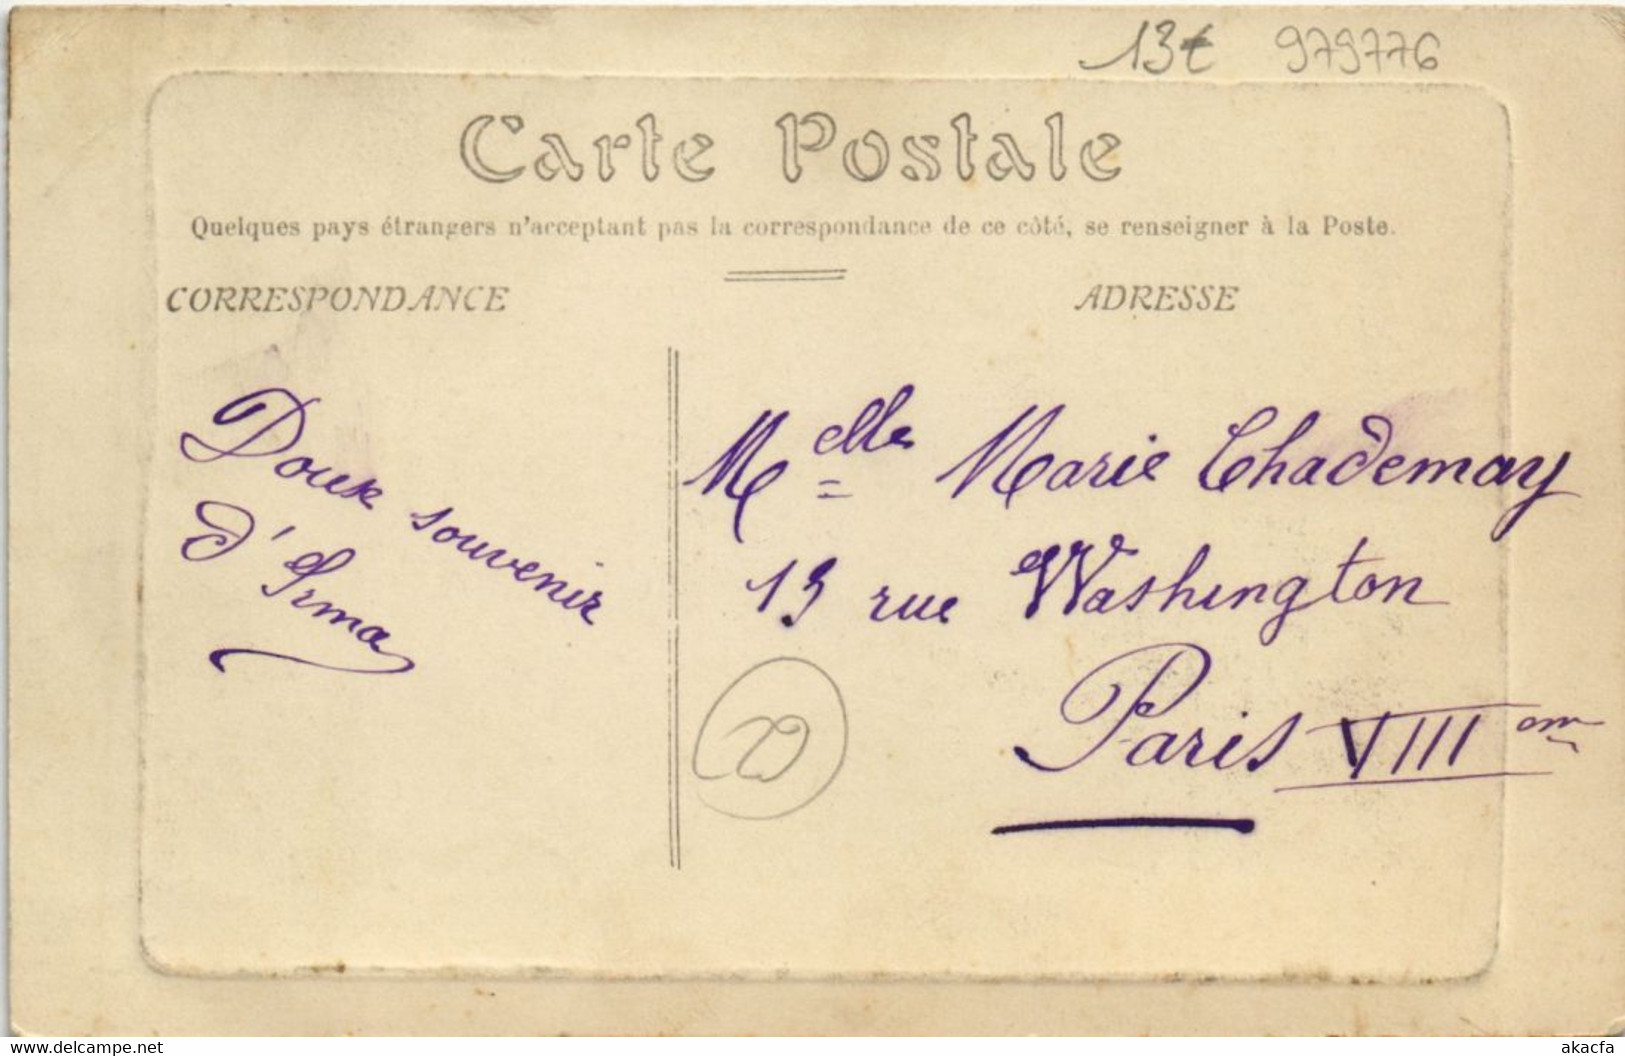 13€ 979776
Carte Postale
Quelques pays étrangers n'acceptant pas la correspondance de ce côté, se renseigner à la Poste.
CORRESPONDANCE
ADRESSE
Doux souvenir
d'Irma
Melle Marie Chademay
13 rue Washington
Paris VIIIem
delcampe.net
akacfa